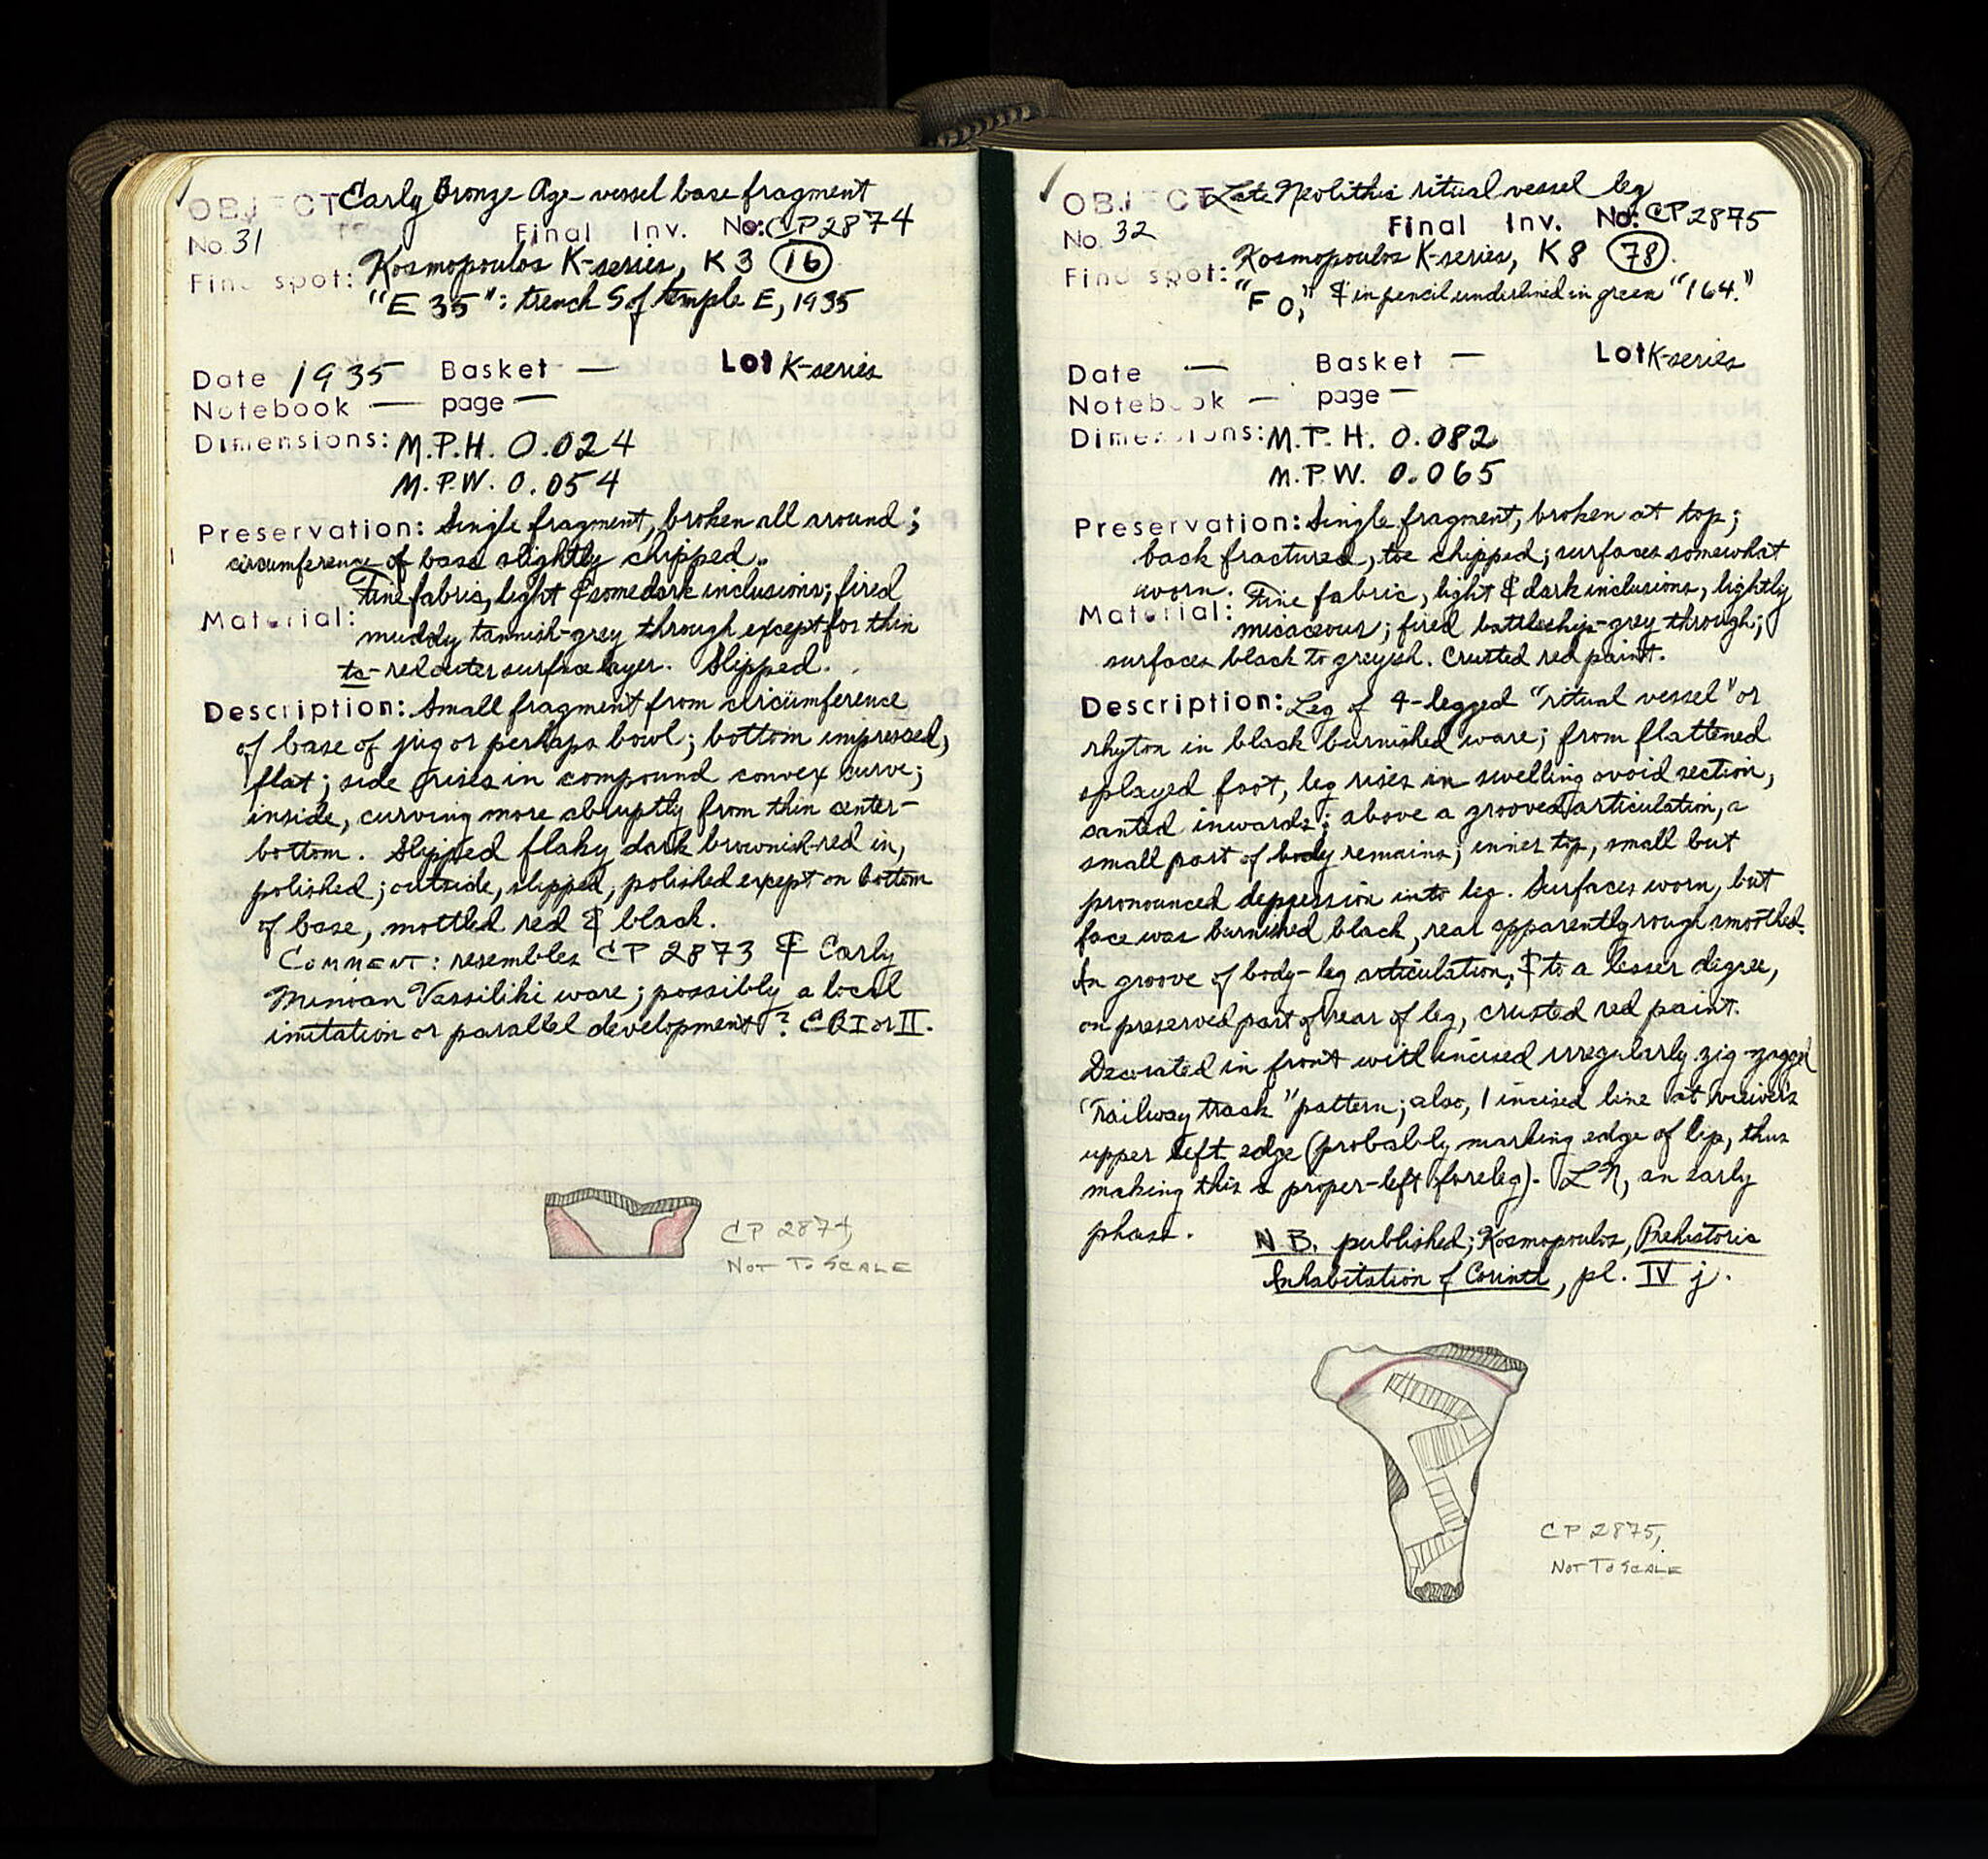 OBJECT Early Bronze Age vessel base fragment
No. 31 Final Inv. No: CP 2874
Find spot: Kosmopoulos K-series, K 3 (16)
"E 35": trench S of temple E, 1935
Date 1935 Basket — Lot K-series
Notebook — page —
Dimensions: M.P.H. 0.024
M.P.W. 0.054
Preservation: Single fragment, broken all around;
circumference of base slightly chipped.
Material: Fine fabric, light & some dark inclusions; fired
muddy tannish-grey through except for thin
to- red outer surface layer. Slipped.
Description: Small fragment from circumference
of base of jug or perhaps bowl; bottom impressed,
flat; side rises in compound convex curve;
inside, curving more abruptly from thin center-
bottom. Slipped flaky dark brownish-red in,
polished; outside, slipped, polished except on bottom
of base, mottled red & black.
COMMENT: resembles CP 2873 & Early
Minoan Vassiliki ware; possibly a local
imitation or parallel development? EB I or II.
CP 2874,
NOT TO SCALE
OBJECT Late Neolithic ritual vessel leg
No. 32 Final Inv. No: CP 2875
Find spot: Kosmopoulos K-series, K 8 (78).
"F O," & in pencil underlined in green "164."
Date — Basket — Lot K-series
Notebook — page —
Dimensions: M.P.H. 0.082
M.P.W. 0.065
Preservation: Single fragment, broken at top;
back fractured, toe chipped; surfaces somewhat
worn.
Material: Fine fabric, light & dark inclusions, lightly
micaceous; fired battleship-grey through;
surfaces black to greyish. Crusted red paint.
Description: Leg of 4-legged "ritual vessel" or
rhyton in black burnished ware; from flattened
splayed foot, leg rises in swelling ovoid section,
canted inwards; above a grooved articulation, a
small part of body remains; inner top, small but
pronounced depression into leg. Surfaces worn, but
face was burnished black, rear apparently rough smoothed.
In groove of body-leg articulation, & to a lesser degree,
on preserved part of rear of leg, crusted red paint.
Decorated in front with incised irregularly zig-zagged
"railway track" pattern; also, 1 incised line at viewer's
upper left edge (probably marking edge of lip, thus
making this a proper-left foreleg). LN, an early
phase.
N B. published; Kosmopoulos, Prehistoric
Inhabitation of Corinth, pl. IV j.
CP 2875,
NOT TO SCALE